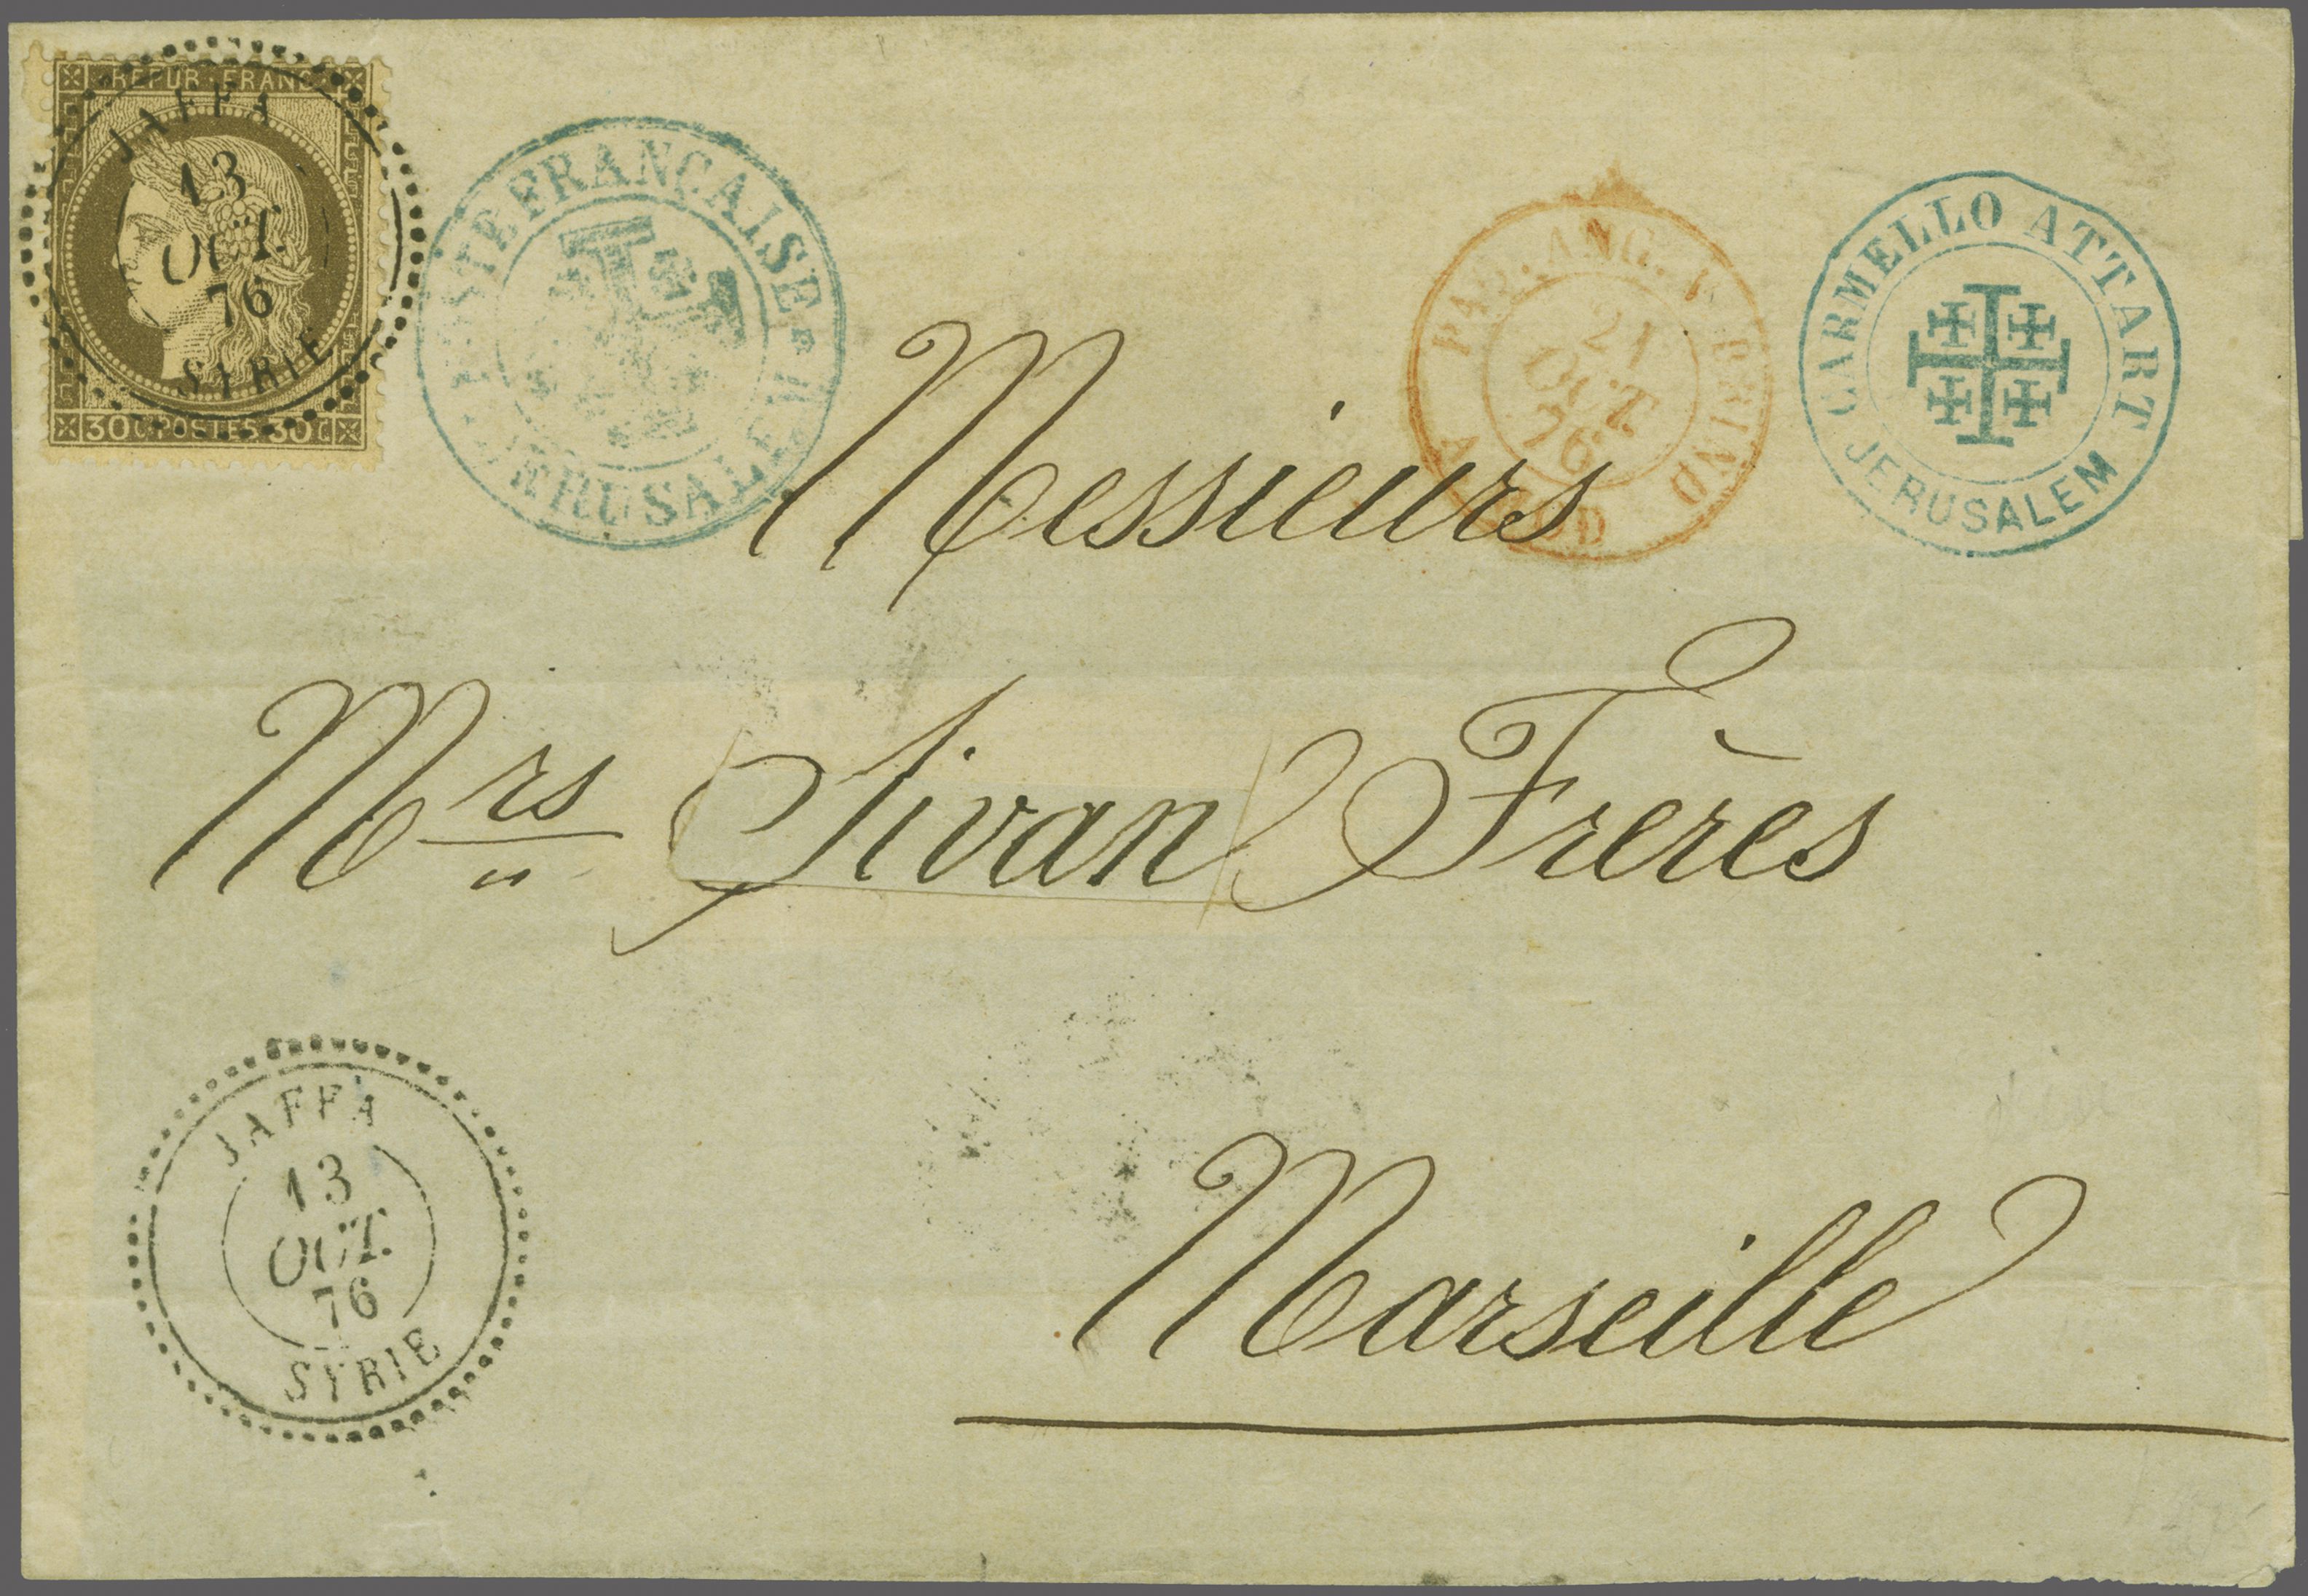 REPUB · FRANC
JAFFA
13
OCT.
76
SYRIE
30 C · POSTES · 30 C
POSTE FRANÇAISE
JERUSALEM
PAQ. ANG. V. BRIND
21
OCT.
76
A MOD
CARMELLO ATTART
JERUSALEM
Messieurs
Mrs Sivan Frères
JAFFA
13
OCT.
76
SYRIE
Marseille